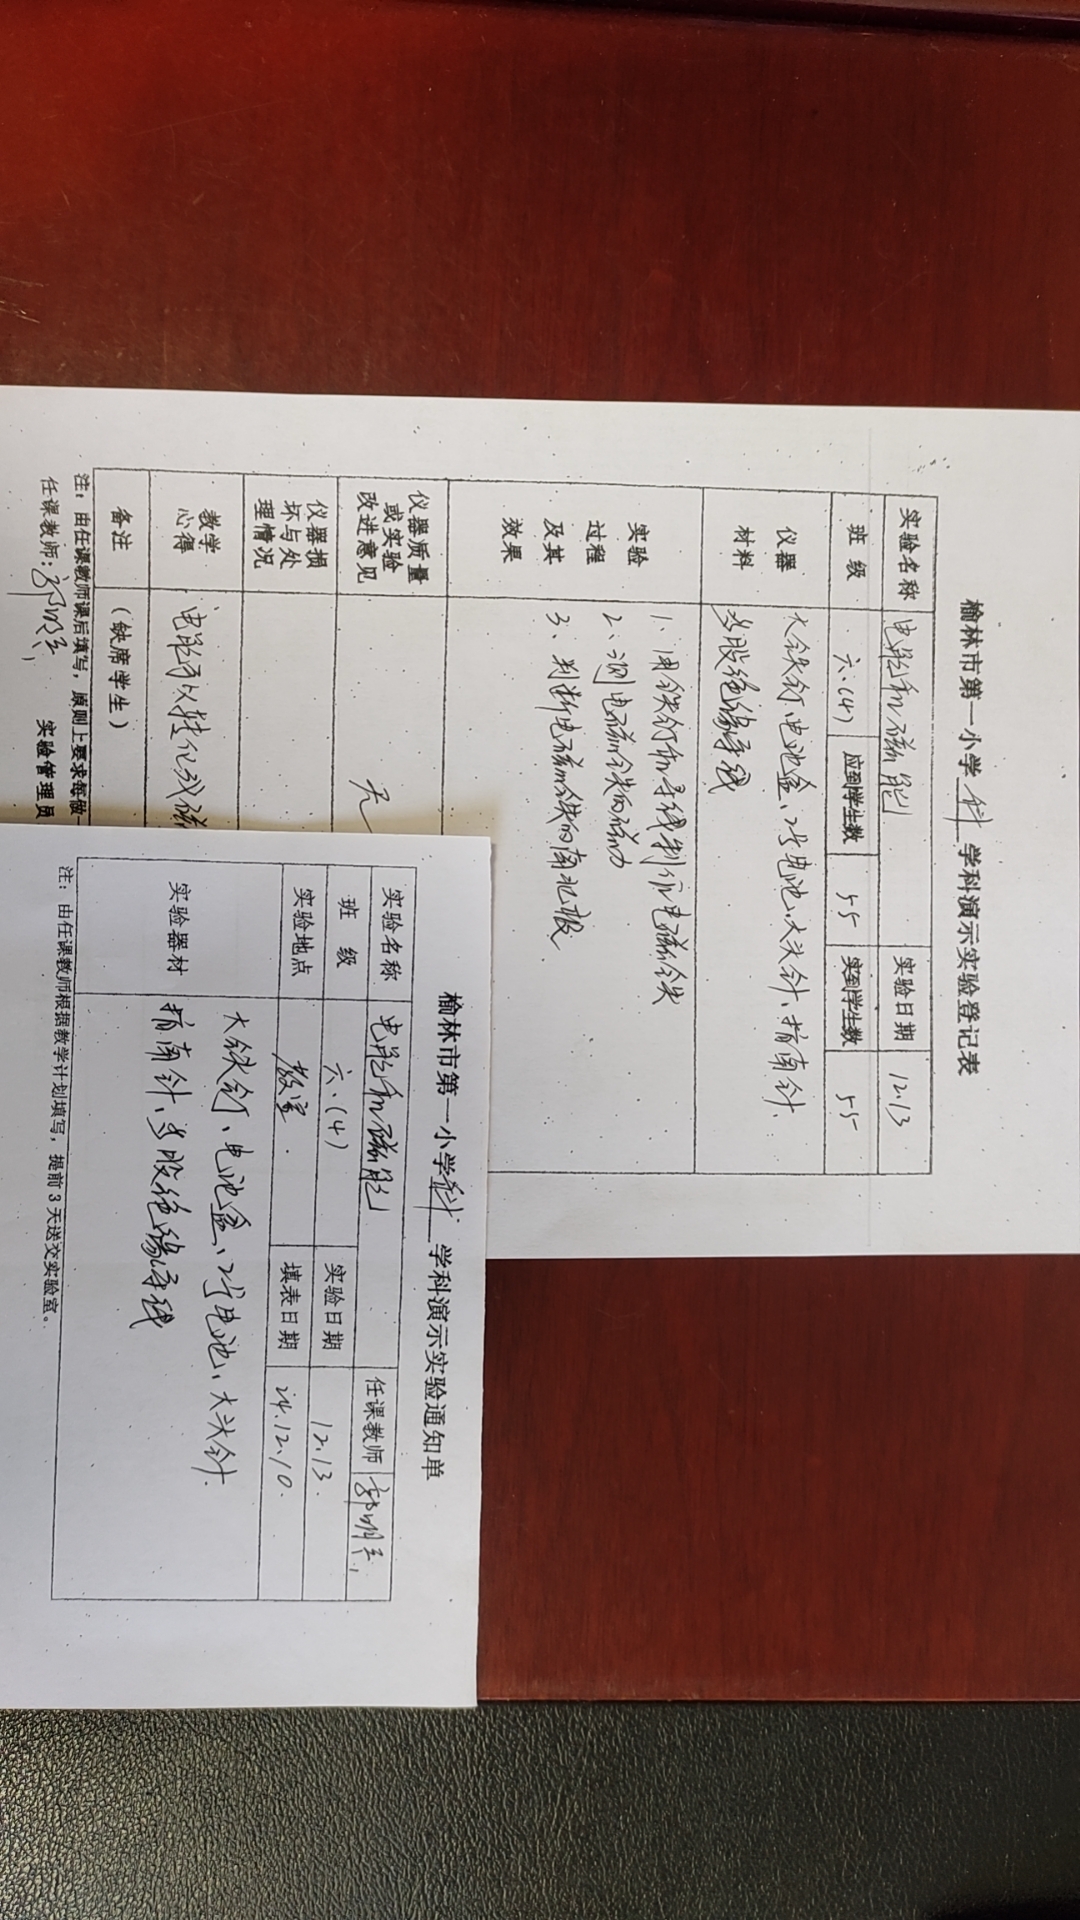 榆林市第一小学科学科演示实验登记表
实验名称 电能和磁能 实验日期 12.13
班 级 六.(4) 应到学生数 55 实到学生数 55
仪器材料 大铁钉、电池盒、2号电池、大头针、指南针.
多股绝缘导线
实验过程及其效果
1、用铁钉和导线制作电磁铁
2、测电磁铁的磁力
3、判断电磁铁的南北极
仪器质量或实验改进意见 无
仪器损坏与处理情况
教学心得 电能可以转化成磁
备注 (缺席学生)
注：由任课教师课后填写，原则上要求每做一
任课教师： 实验管理员
榆林市第一小学科学科演示实验通知单
实验名称 电能和磁能 任课教师
班 级 六.(4) 实验日期 12.13.
实验地点 教室. 填表日期 24.12.10.
实验器材 大铁钉、电池盒、2号电池、大头针.
指南针、多股绝缘导线
注：由任课教师根据教学计划填写，提前3天送交实验室。